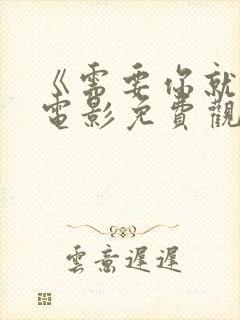 《需要你就
電影免費觀
雲意遲遲